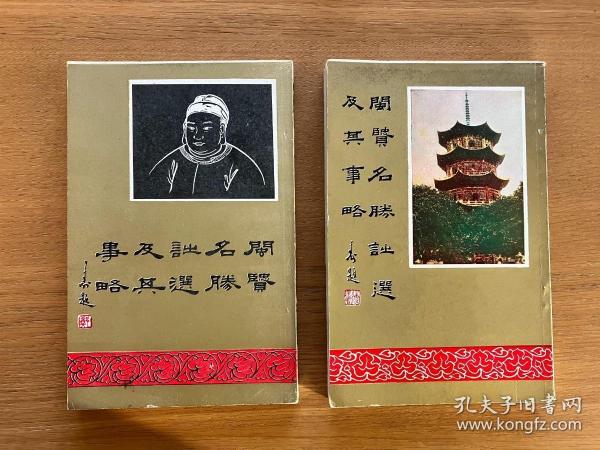 閩賢
名勝
詩選
及其
事略
題
閩賢名勝詩選
及其事略
題
孔夫子旧書网
www.kongfz.com